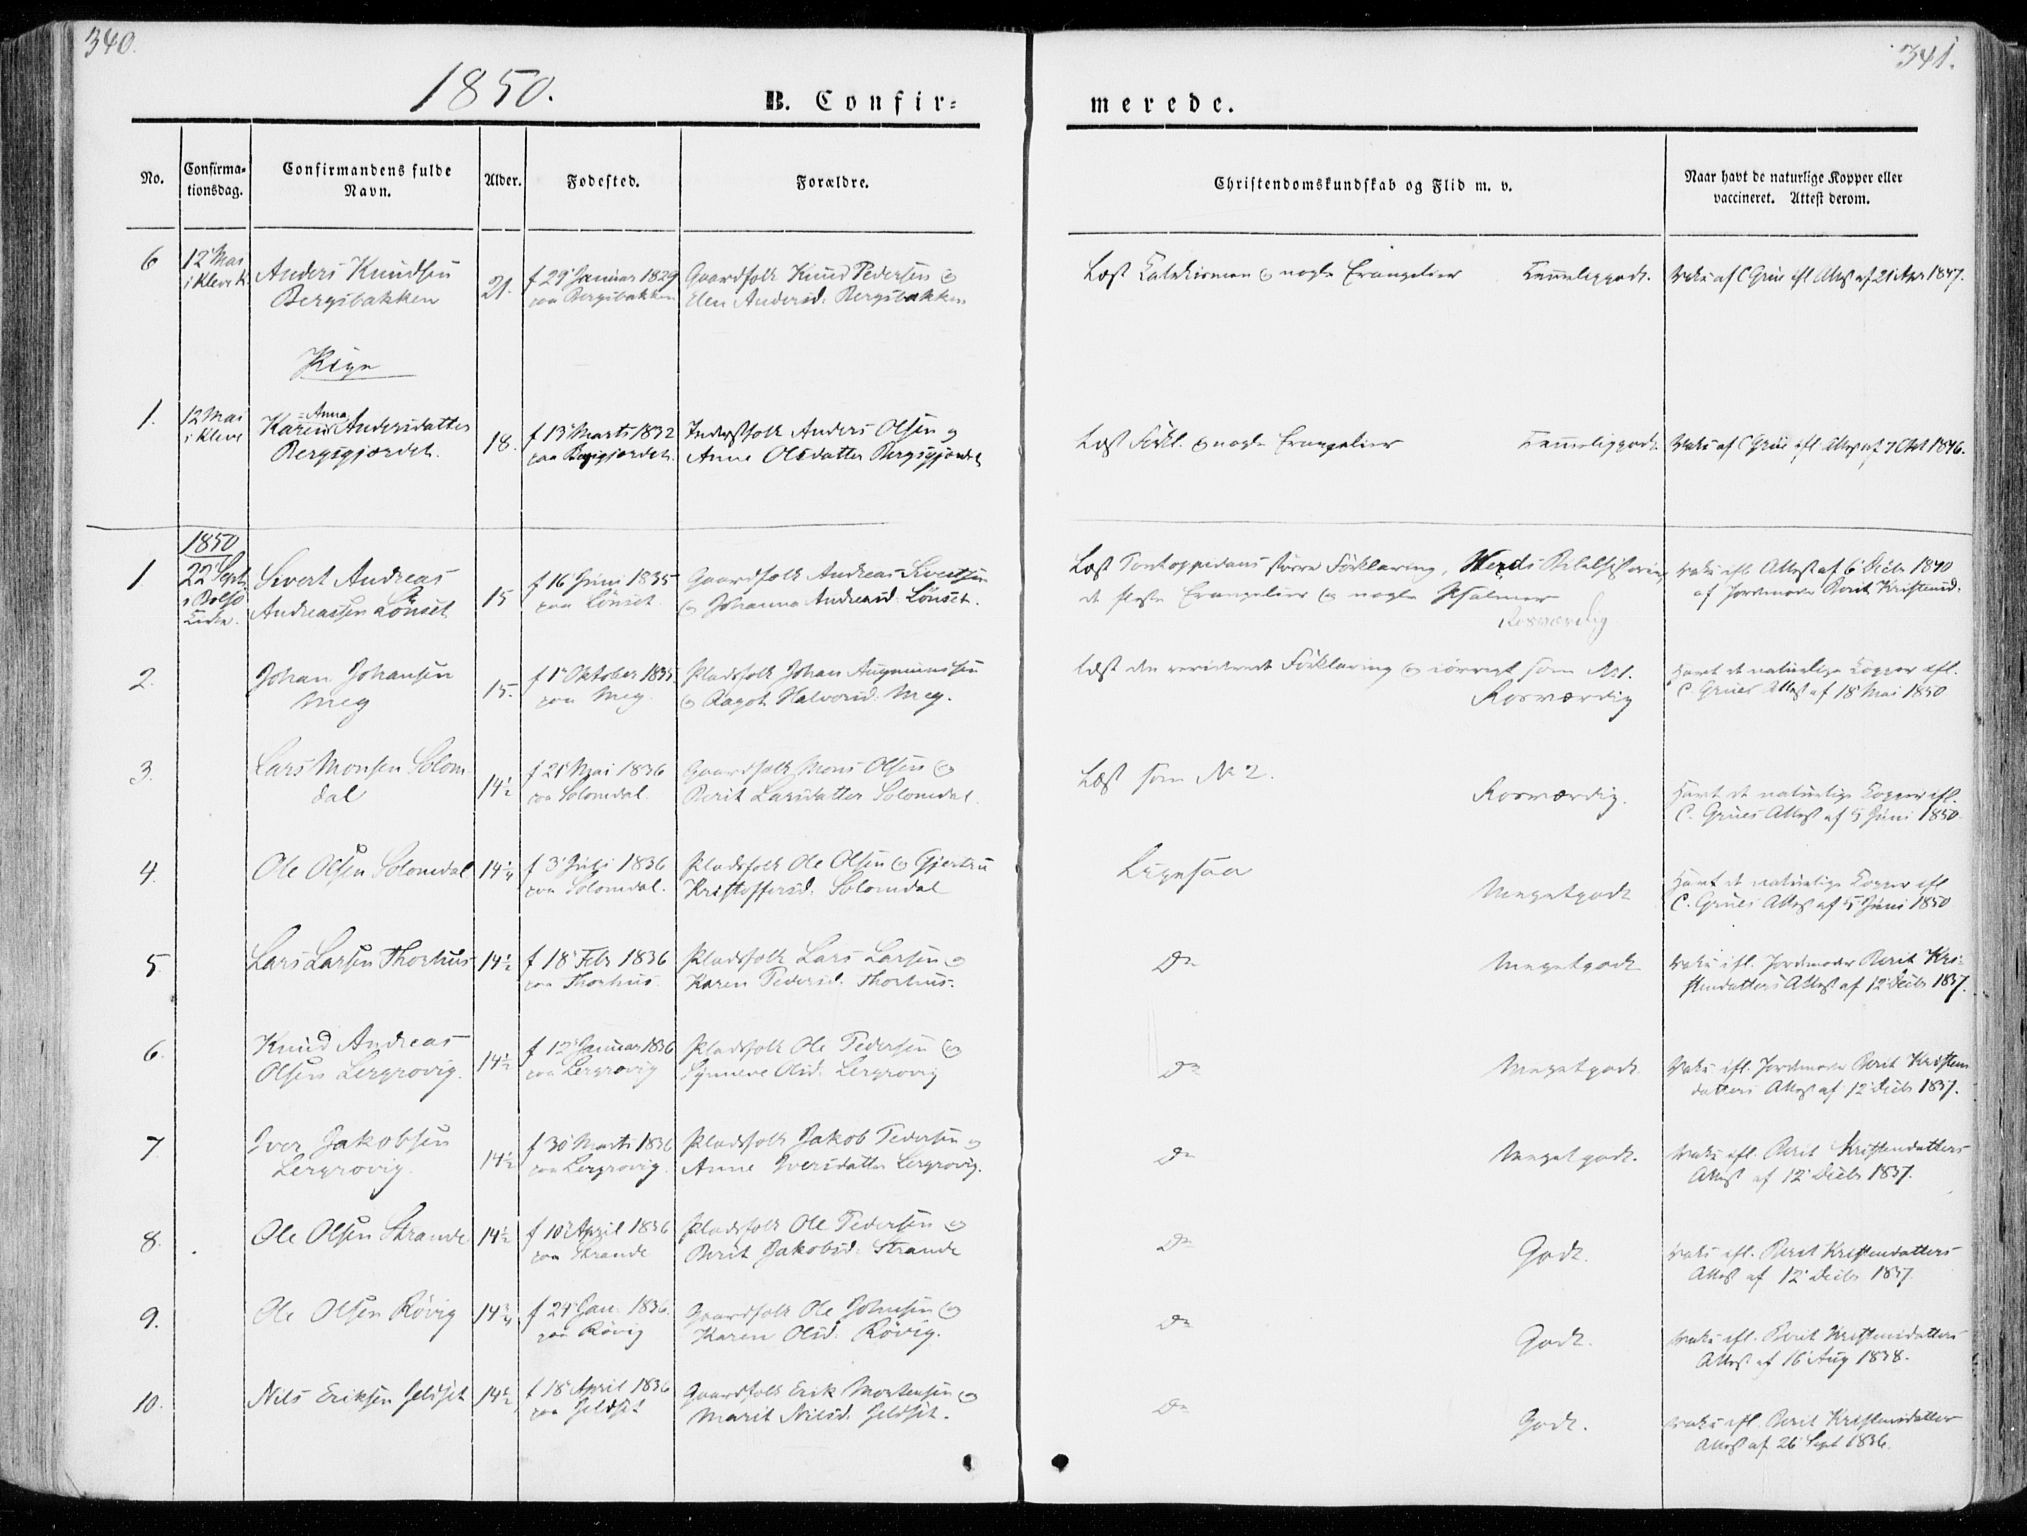 340.
341.
1850.
B. Confir=
merede.
No.
Confirma=
tionsdag.
Confirmandens fulde
Navn.
Alder.
Fødested.
Forældre.
Christendomskundskab og Flid m. v.
Naar havt de naturlige Kopper eller
vaccineret. Attest derom.
6
12 Mai
i Kleve K
Anders Knudsen
Bergsbakken
21.
f 29 Januar 1829
paa Bergsbakken
Gaardfolk Knud Pedersen og
Elen Andersd. Bergsbakken
Læst Katekismen og nogle Evangelier
Temmeliggodt.
Vaks af C Grüe efl Attest af 21 Apr 1847.
Pige
1.
12 Mai
i Kleve
=Anna
Karen Andersdatter
Bergsgjærdet.
18.
f 13 Marts 1832
paa Bergsgjærdet.
Inderstfolk Anders Olsen og
Anne Olsdatter Bergsgjærdet
Læst Förkl. og nogle Evangelier
Temmeliggodt
Vaks af C Grüe efl Attest af 7 Okt 1846.
1850
1.
22 Sept
i Bolsö
Kirke.
Sivert Andreas
Andreassen Lönset
15
f 16 Juni 1835
paa Lönset
Gaardfolk Andreas Sivertsen
og Johanna Andreasd. Lönset.
Læst Pontoppidans större Förklaring, Herds Bibelhistorie,
de fleste Evangelier og nogle Psalmer
Rosværdig
Vaks efl. Attest af 6 Decbr 1840
af Jordmoder Berit Kristensd.
2.
Johan Johansen
Meg
15.
f 1 Oktober 1835
paa Meg.
Pladsfolk Johan Augmunssen
og Ragot Halvorsd. Meg.
Læst den reviderede Förklaring og iövrigt som No 1.
Rosværdig
Havt de naturlige Kopper efl.
C. Grües Attest af 18 Mai 1850
3.
Lars Monsen Solom
dal
14½
f 21 Mai 1836
paa Solomdal.
Gaardfolk Mons Olsen og
Berit Larsdatter Solomdal.
Læst som No 2.
Rosværdig.
Havt de naturlige Kopper efl.
C. Grües Attest af 5 Juni 1850.
4.
Ole Olsen Solomdal
14¼
f 3 Juli 1836
paa Solomdal.
Pladsfolk Ole Olsen og Gjertru
Kristoffersd. Solomdal
Ligesaa
Megetgodt
Havt de naturlige Kopper efl
C. Grües Attest af 5 Juni 1850
5.
Lars Larsen Thorhus
14½
f 18 Febr 1836
paa Thorhus.
Pladsfolk Lars Larsen og
Karen Pedersd. Thorhus.
Do
Megetgodt
Vaks efl. Jordmoder Berit Kri-
stendatters Attest af 12 Decbr 1837.
6.
Knud Andreas
Olsen Lergrovig.
14½
f 12 Januar 1836
paa Lergrovig
Pladsfolk Ole Pedersen og
Synneve Olsd. Lergrovig
Do
Megetgodt.
Vaks efl. Jordmoder Berit Kristens
datters Attest af 12 Decbr 1837.
7.
Iver Jakobsen
Lergrovig.
14½
f 30 Marts 1836
paa Lergrovig.
Pladsfolk Jakob Pedersen og
Anne Iversdatter Lergrovig.
Do
Meget godt.
Vaks efl. Berit Kristendatters
Attest af 12 Decbr 1837.
8.
Ole Olsen Strande
14½
f 10 April 1836
paa Strande
Pladsfolk Ole Pedersen og
Berit Jakobsd. Strande
Do
Godt.
Vaks efl. Berit Kristendatters
Attest af 12 Decbr 1837.
9.
Ole Olsen Rövig
14¾
f 24 Jan. 1836.
paa Rövig
Gaardfolk Ole Johnsen og
Karen Olsd. Rövig.
Do
Godt.
Vaks efl. Berit Kristensdatters
Attest af 16 Aug 1838.
10.
Nils Eriksen Jeldset
14½
f 18 April 1836
paa Jeldset
Gaardfolk Erik Mortensen og
Marit Nilsd. Jeldset.
Do
Godt.
Vaks efl. Berit Kristensdatter
Attest af 26 Sept 1836.